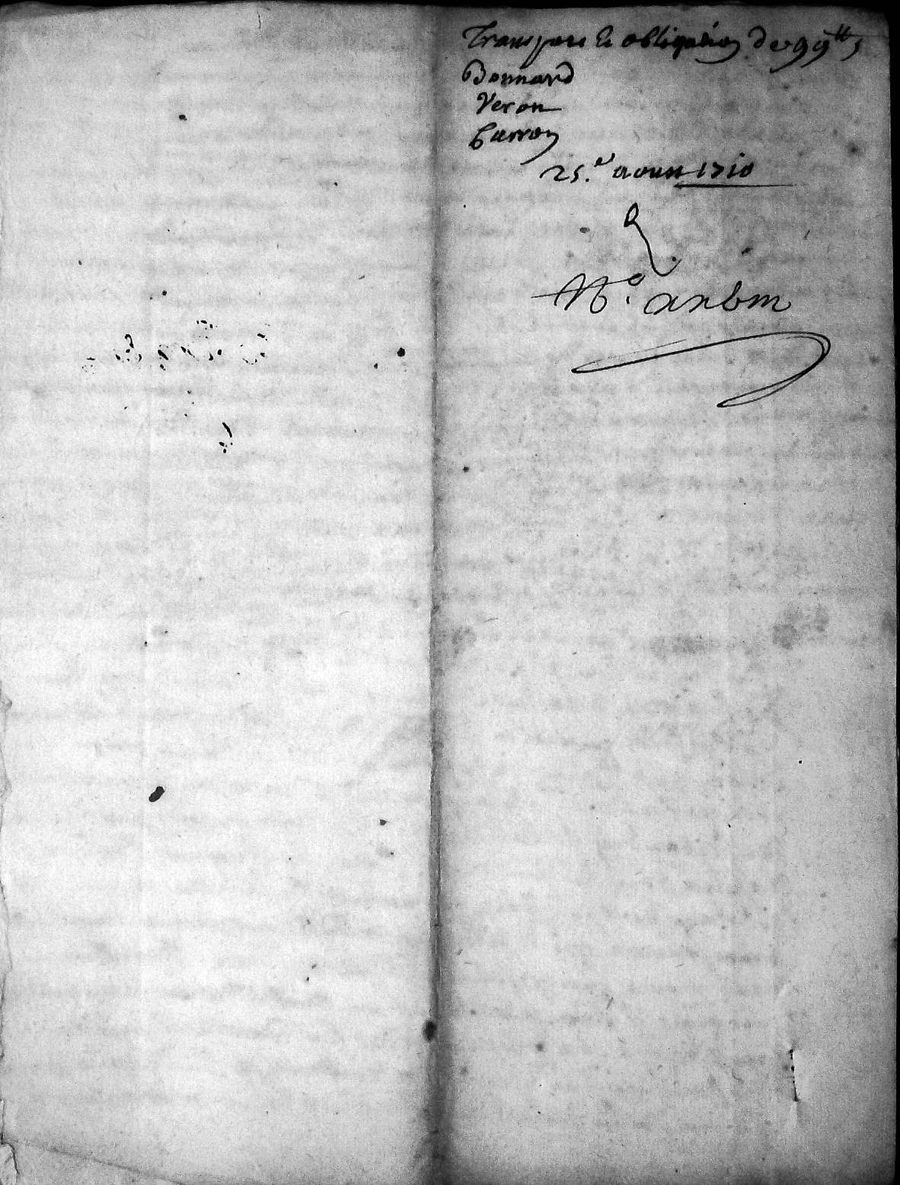 Transport & obligation de 99ᵗᵗ
Bonnard
Veron
Carron
25.ᵉ aoust 1710
Nᵒ.